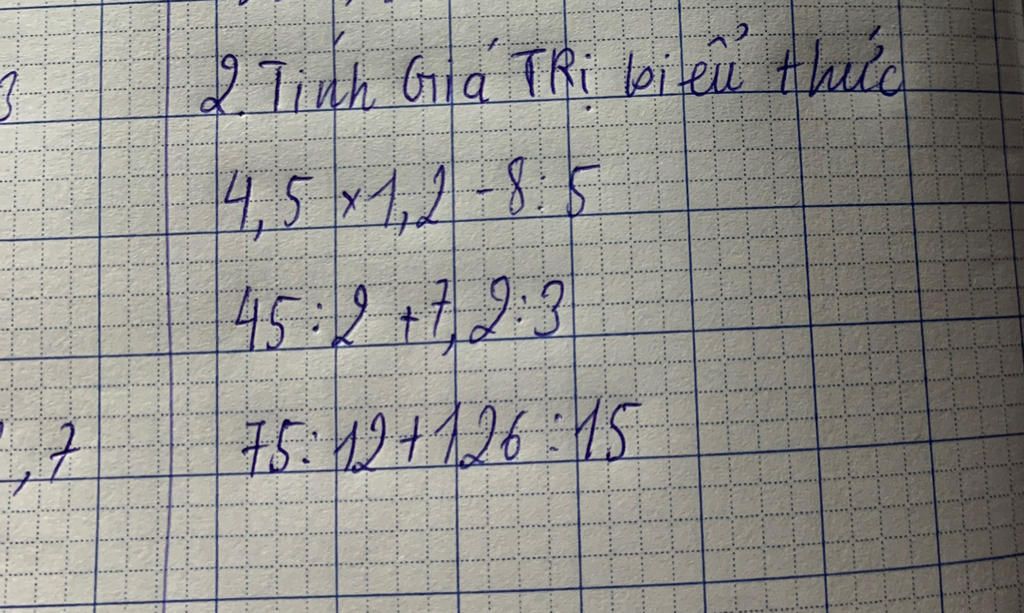 3
2. Tính Giá TRị biểu thức
4,5 × 1,2 - 8 : 5
45 : 2 + 7,2 : 3
,7
75 : 12 + 126 : 15